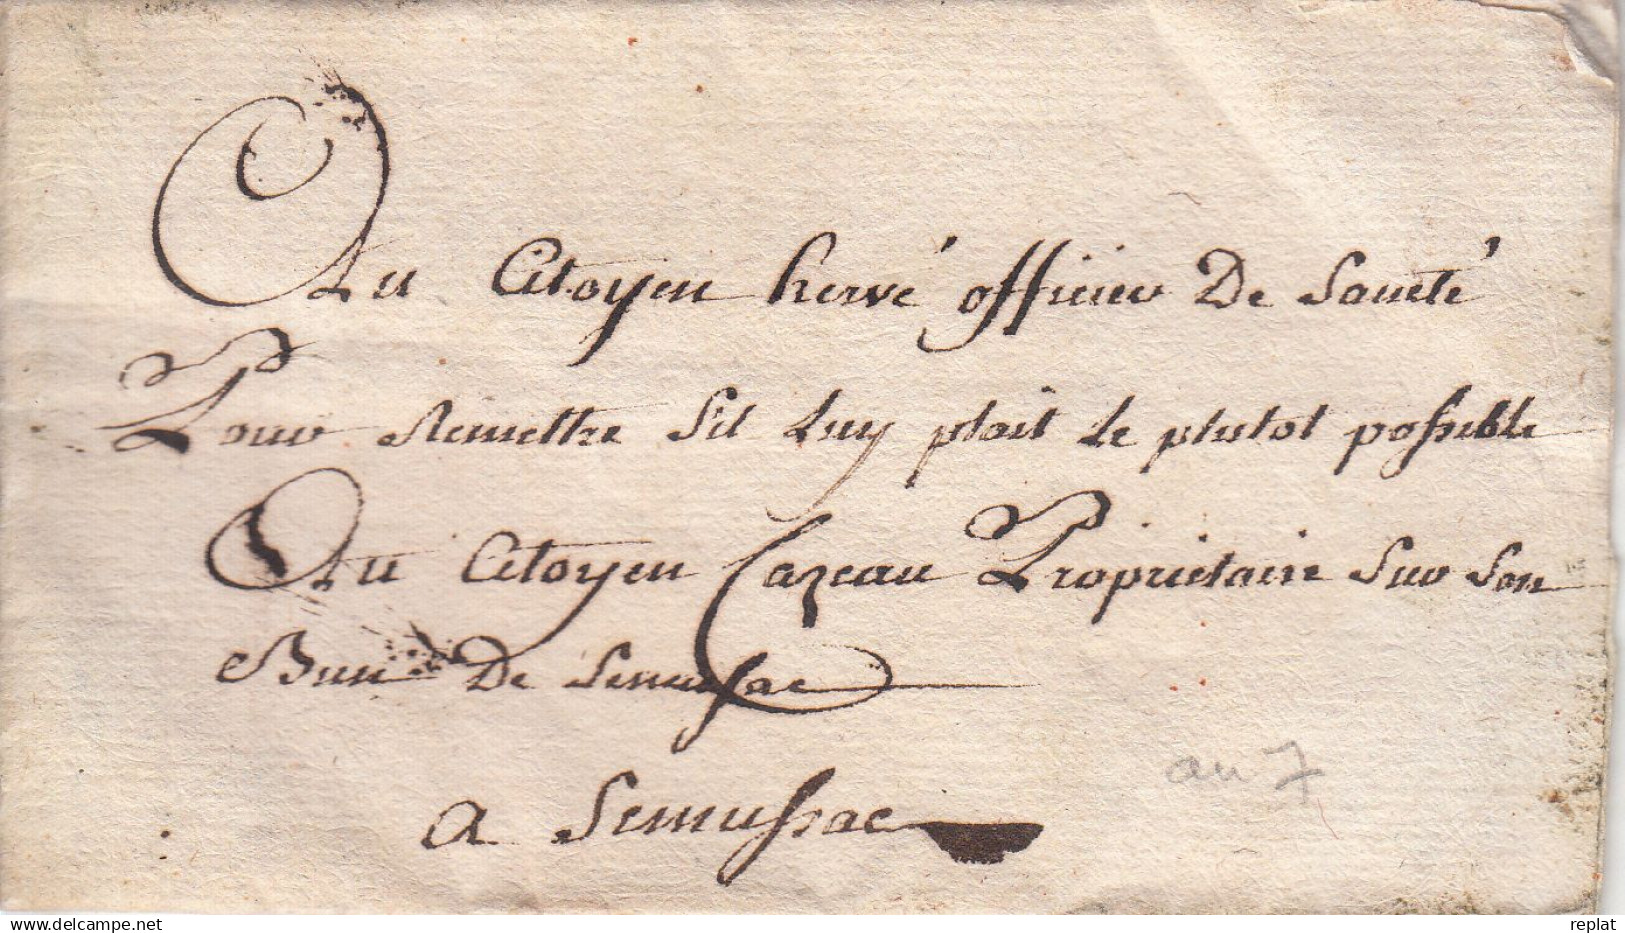 Au Citoyen hervé officier De Santé
Pour Remettre Sil Luy plait Le plutot possible
Au Citoyen Cazeau Propriétaire Sur Son
Bien De Semussac
a Semussac
an 7
© delcampe.net
replat